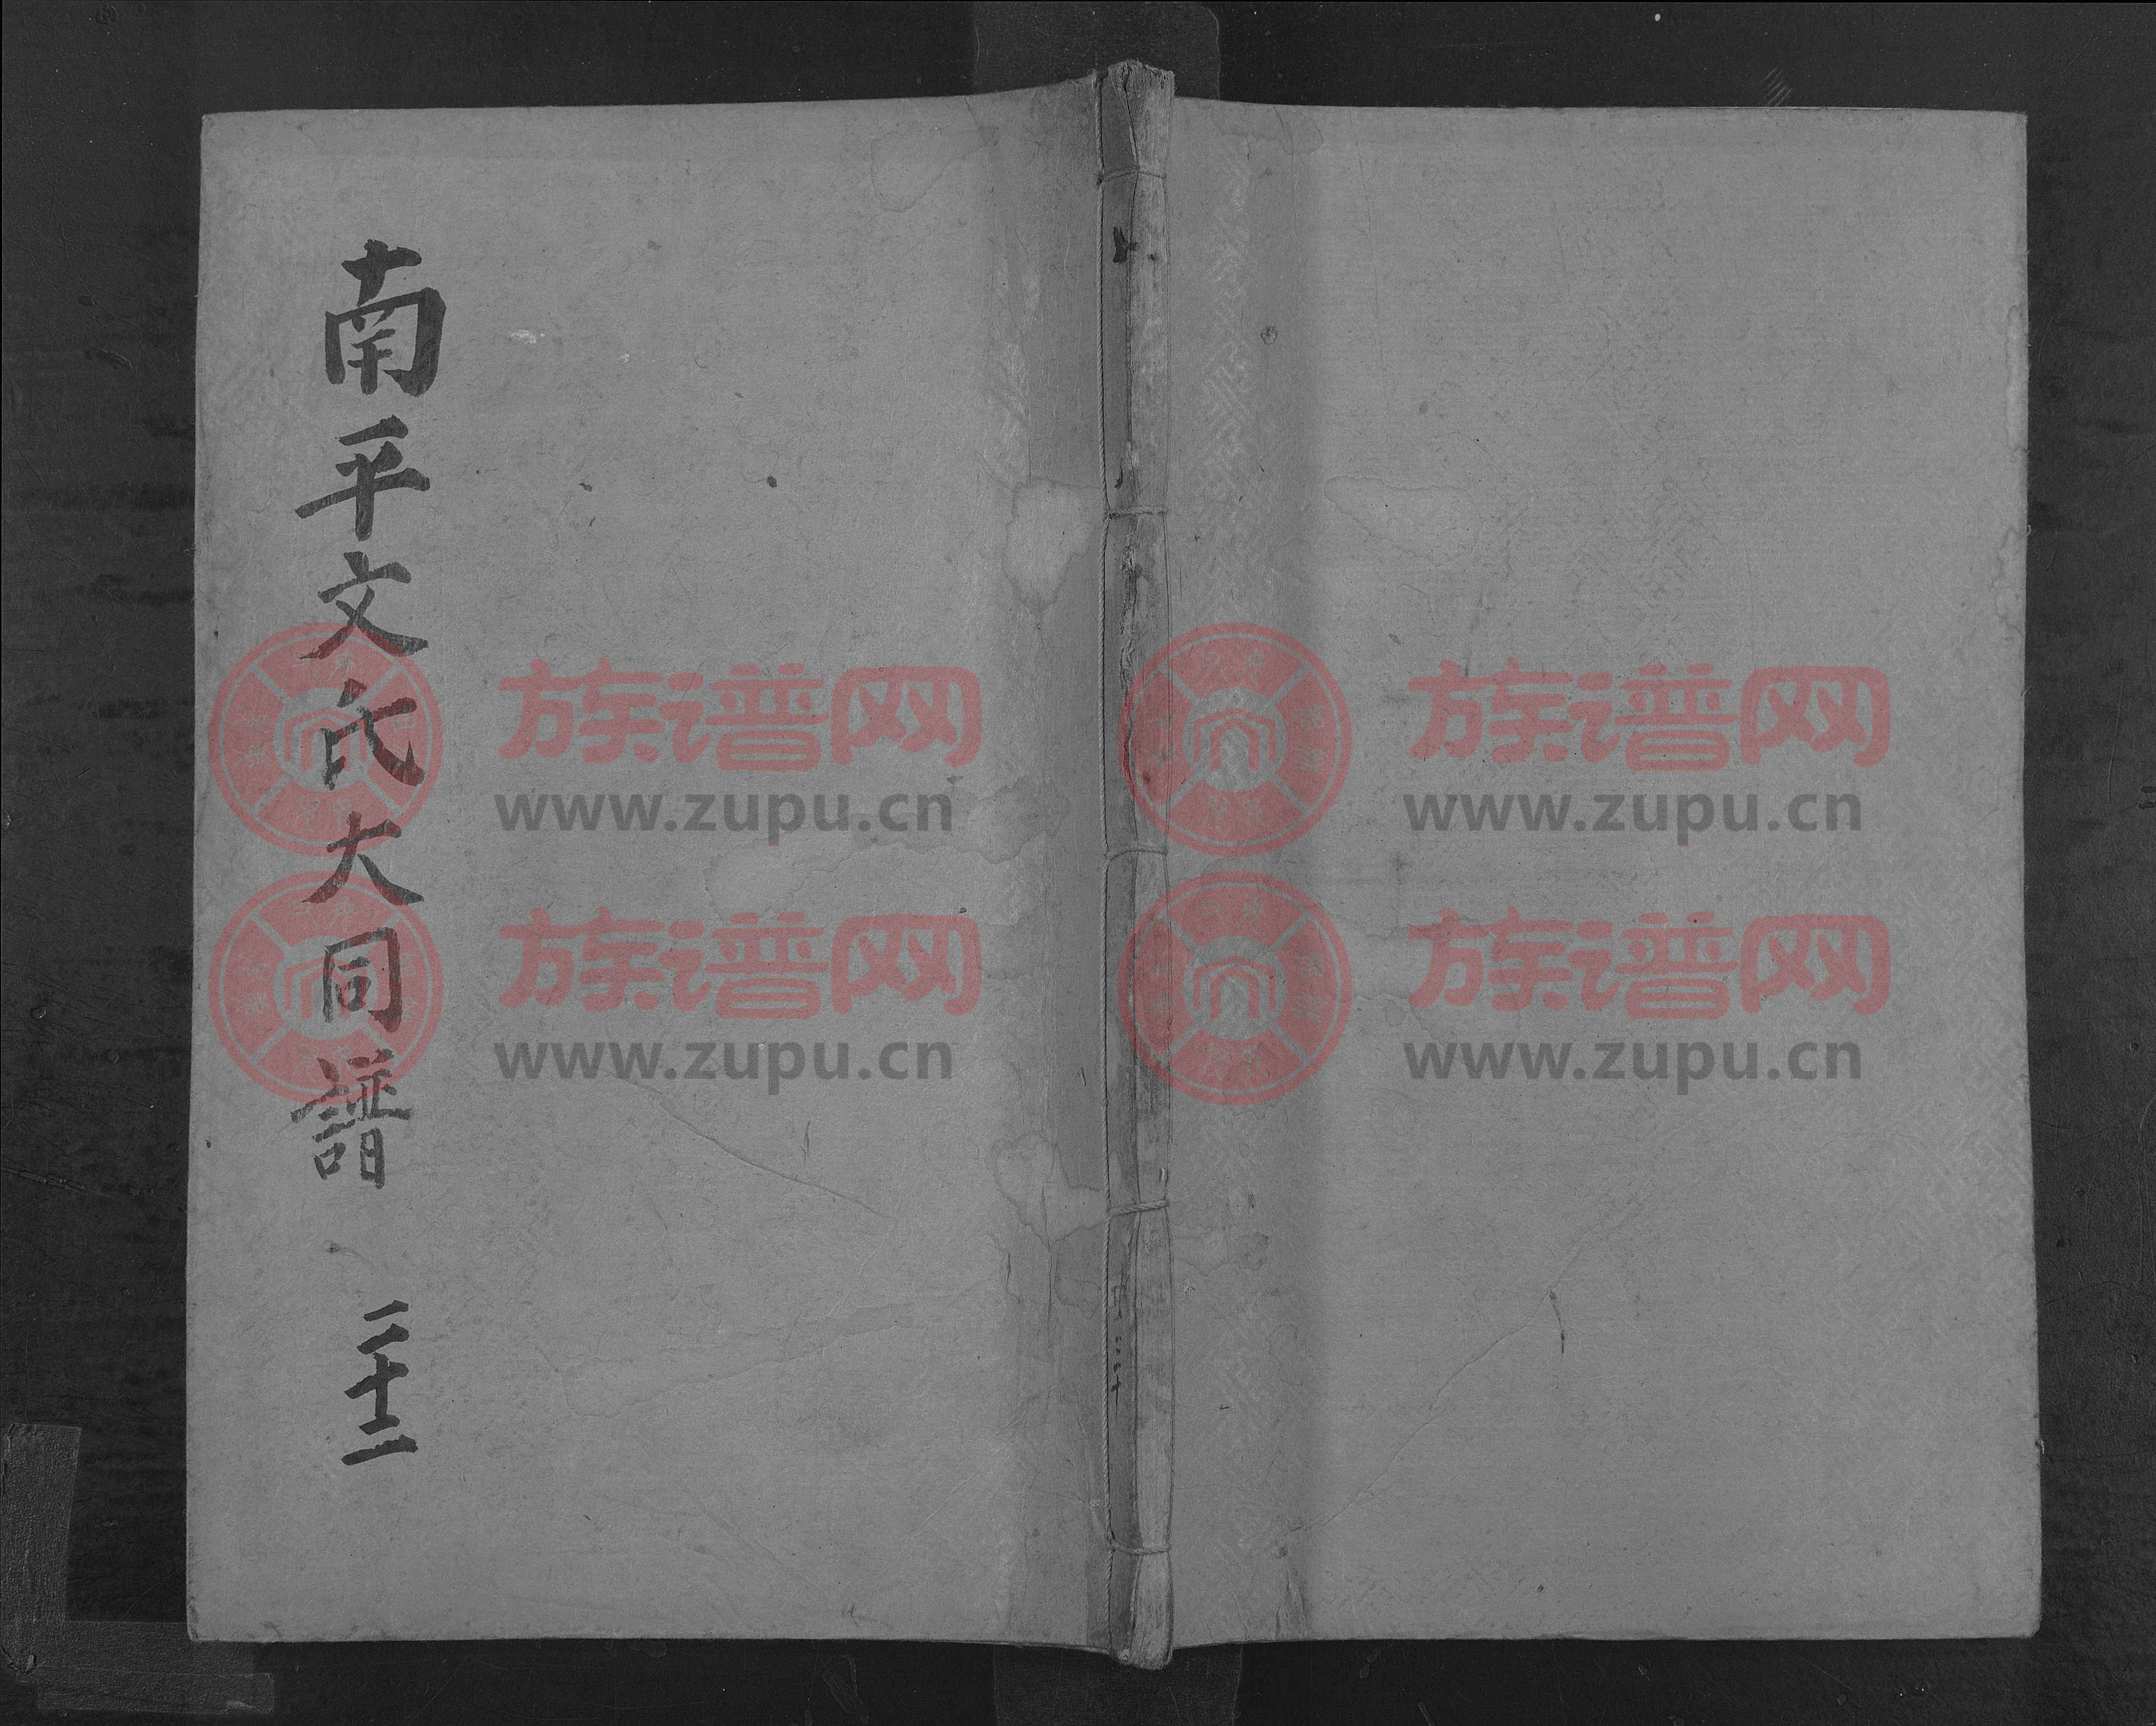 南平文氏大同譜 二十二
族谱网
www.zupu.cn
族谱网
www.zupu.cn
族谱网
www.zupu.cn
族谱网
www.zupu.cn